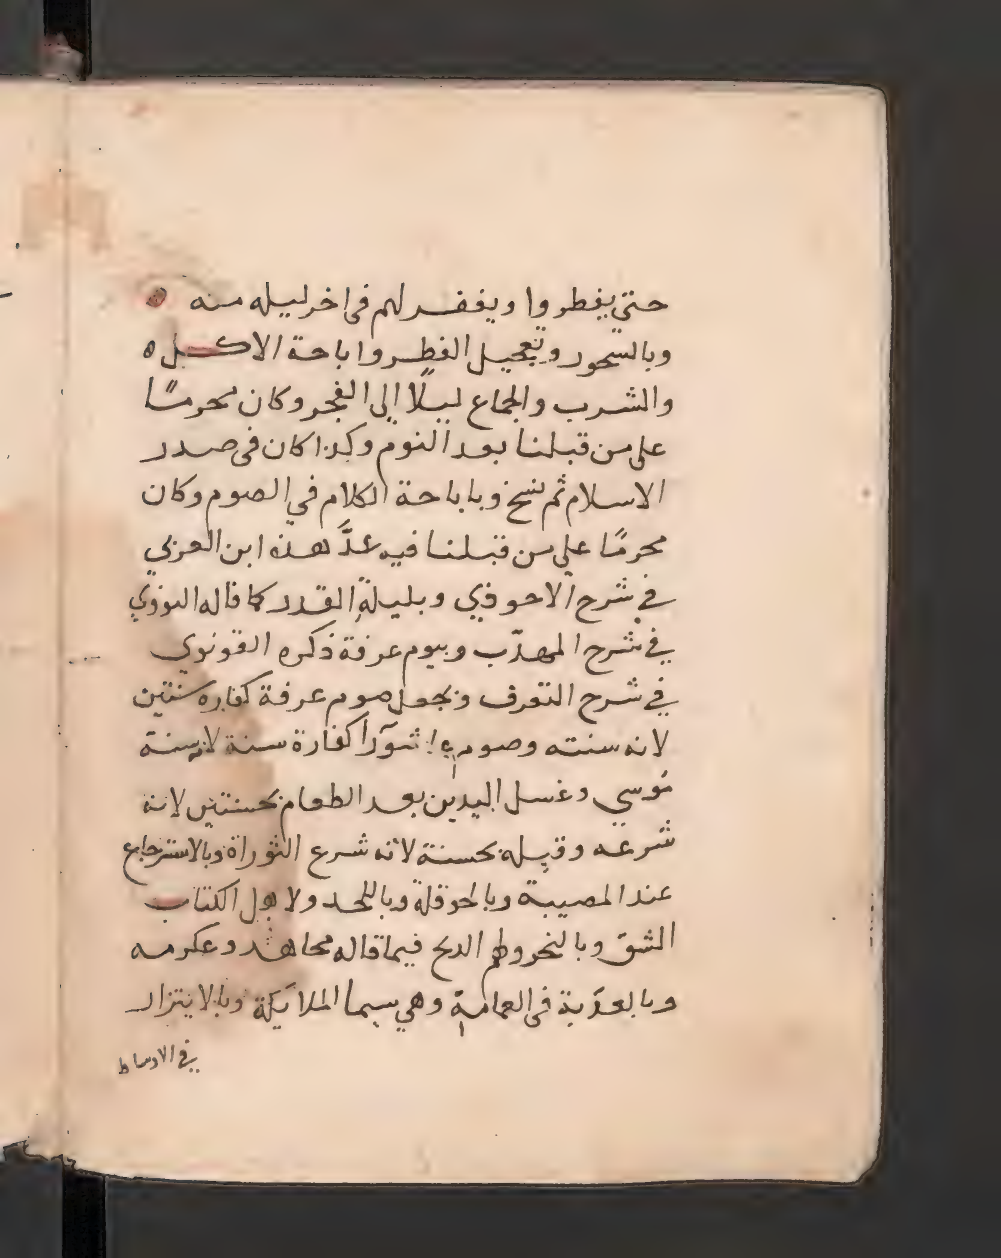 حتى يفطروا ويغفر لهم في اخر ليله منه
وبالسحور وتعجيل الفطر واباحة الاكل
والشرب والجماع ليلًا إلى الفجر وكان محرمًا
على من قبلنا بعد النوم وكذا كان في صدر
الاسلام ثم نسخ وباباحة الكلام في الصوم وكان
محرمًا على من قبلنا فيه عدَّ هذه ابن العربي
في شرح الاحوذي وبليلة القدر كما قاله النووي
في شرح المهذّب وبيوم عرفة ذكره القونوي
في شرح التعرف ونجعل صوم عرفة كفارة سنتين
لانه سنته وصوم عاشورآ كفارة سنة لانه سنة
موسي وغسل اليدين بعد الطعام بحسنتين لانه
شرعه وقبله بحسنة لانه شرع التوراة وبالاسترجاع
عند المصيبة وبالحوقلة وباللحد ولاهل الكتاب
الشق وبالنحر ولهم الذبح فيما قاله مجاهد وعكرمه
وبالعذبة في العمامة وهي سيما الملائكة وبالايتزار
في الاوساط